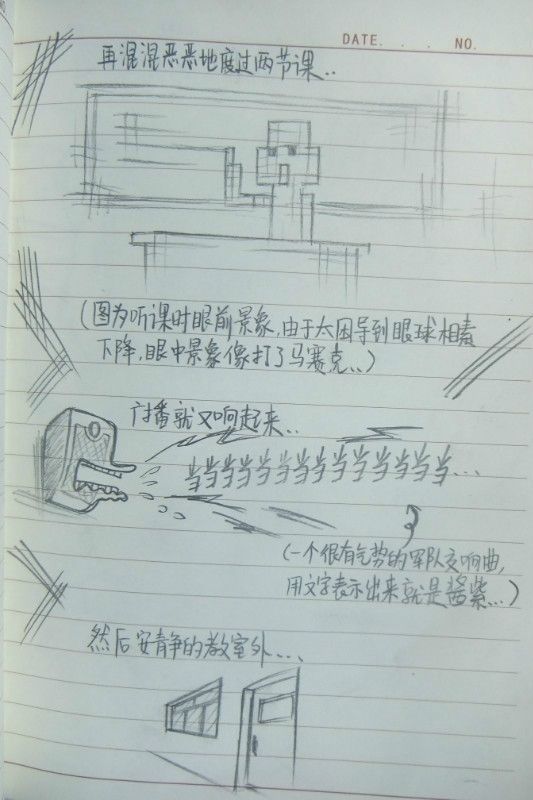 DATE. . . . NO.
再混混恶恶地度过两节课..
(图为听课时眼前景象,由于太困导到眼球相素
下降,眼中景象像打了马赛克...)
广播就又响起来..
当当当当当当当当当当当当当当当...
(一个很有气势的军队交响曲,
用文字表示出来就是酱紫...)
然后安静的教室外....